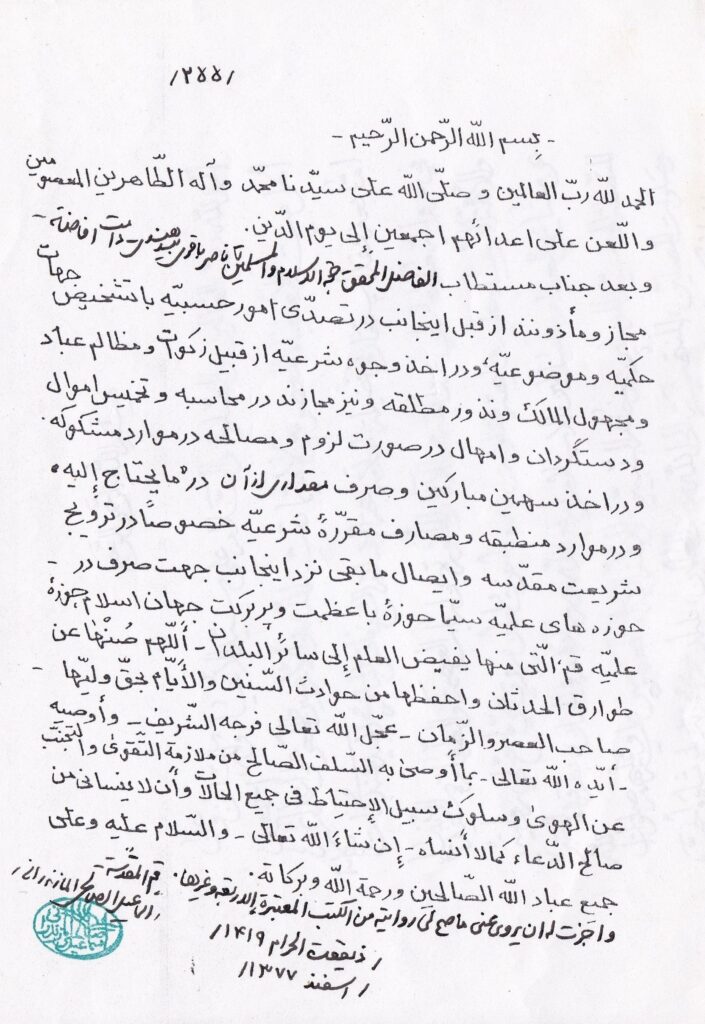 /۲۵۵/
- بِسم اللّه الرّحمن الرّحیم -
الحمد للّه ربّ العالمین و صلّی اللّه علی سیّدنا محمّد و آله الطّاهرین المعصومین
واللّعن علی اعدائهم اجمعین إلی یوم الدّین.
و بعد جناب مستطاب الفاضل المحقق حجة الاسلام والمسلمین ناصر باقری بیدهندی دامت افاضاته -
مجاز و مأذونند از قبل اینجانب در تصدّی امور حسبیّه با تشخیص جهات
حکمیّه و موضوعیّه، و در اخذ وجوه شرعیّه از قبیل زکوات و مظالم عباد
و مجهول المالک و نذور مطلقه و نیز مجازند در محاسبه و تخمیس اموال
و دستگردان و امهال در صورت لزوم و مصالحه در موارد مشکوکه.
و در اخذ سهمین مبارکین و صرف مقداری از آن در ما یحتاج إلیه،
و در موارد منطبقه و مصارف مقرّرهٔ شرعیّه خصوصاً در ترویج
شریعت مقدّسه و ایصال ما بقی نزد اینجانب جهت صرف در -
حوزه های علمیّه سیّما حوزهٔ با عظمت و پر برکت جهان اسلام حوزهٔ
علمیّه قم الّتی منها یفیض العلم إلی سائر البلدان - أللّهم صُنْها عن
طوارق الحدثان و احفظها من حوادث السّنین والأیّام بحقّ ولیّها -
صاحب العصر والزّمان - عجّل اللّه تعالی فرجه الشّریف - و أوصیه
- أیّده اللّه تعالی - بما أوصی به السّلف الصّالح من ملازمة التّقوی والتجنّب
عن الهوی و سلوک سبیل الإحتیاط فی جمیع الحالات و أن لا ینسانی من
صالح الدّعاء کما لا أنساه - إن شاء اللّه تعالی - والسّلام علیه و علی
جمیع عباد اللّه الصّالحین و رحمة اللّه و برکاته.
و اجزت له ان یروی عنی ما صح لی روایته من الکتب المعتبرة الاربعة و غیرها. قم المقدّسة
/اسماعیل الصالحی المازندرانی/
/ذیقعدة الحرام ۱۴۱۹/
/اسفند ۱۳۷۷/